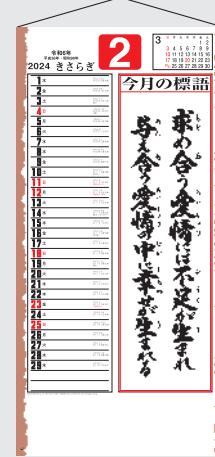 令和6年
平成36年・昭和99年
2024 きさらぎ
2
3
1 2
3 4 5 6 7 8 9
10 11 12 13 14 15 16
17 18 19 20 21 22 23
24/31 25 26 27 28 29 30
1 木
2 金
3 土
4 日
5 月
6 火
7 水
8 木
9 金
10 土
11 日
12 月
13 火
14 水
15 木
16 金
17 土
18 日
19 月
20 火
21 水
22 木
23 金
24 土
25 日
26 月
27 火
28 水
29 木
今月の標語
求め合う愛情は不足が生まれ
与え合う愛情の中に幸せが生まれる